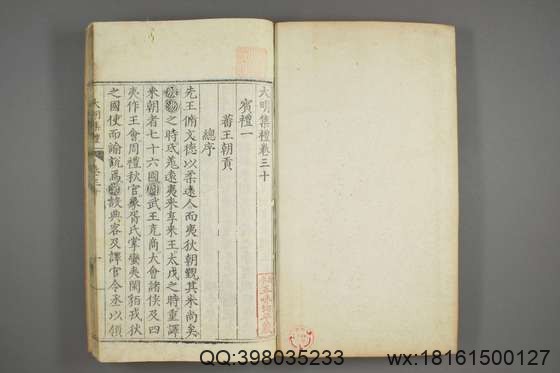 大明集禮卷三十
賓禮一
蕃王朝貢
總序
先王脩文德以柔遠人而夷狄朝覲其来尚矣
殷湯之時氐羌遠夷来享来王太戊之時重譯
来朝者七十六國周武王克商大會諸侯及四
夷作王會周禮秋官象胥氏掌蠻夷閩貉戎狄
之國使而諭說焉漢設典客及譯官令丞以領
大明集禮
QQ:398035233
wx:18161500127